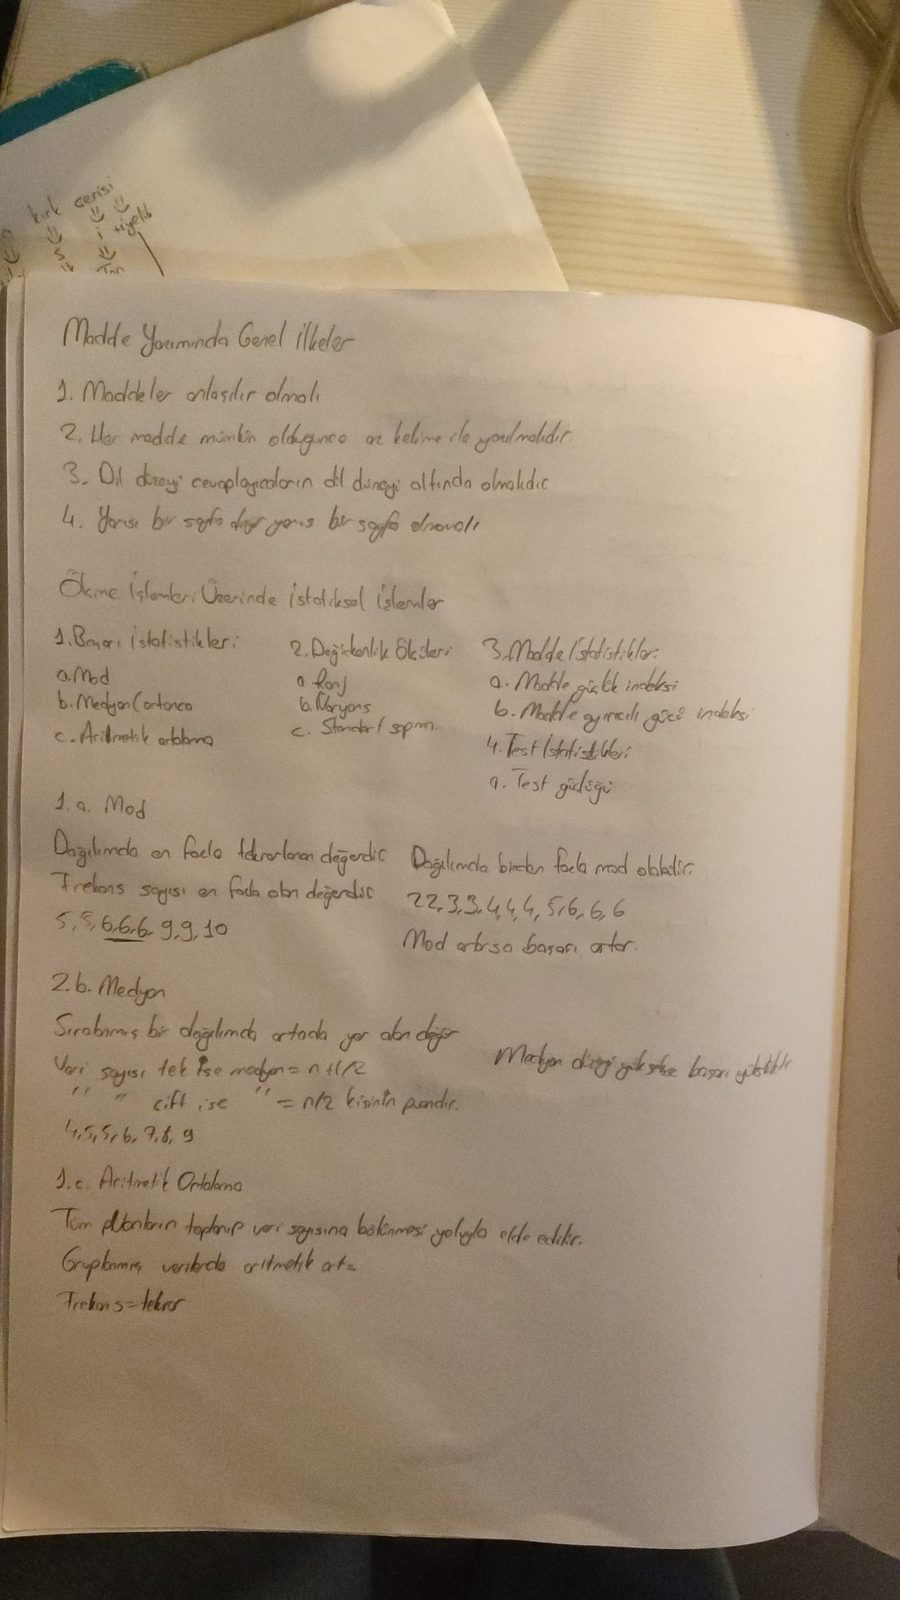 kırk
serisi
Madde Yazımında Genel İlkeler
1. Maddeler anlaşılır olmalı
2. Her madde mümkün olduğunca az kelime ile yazılmalıdır
3. Dil düzeyi cevaplayıcıların dil düzeyi altında olmalıdır
4. Yarısı bir sayfa diğer yarısı bir sayfa olmamalı
Ölçme İşlemleri Üzerinde İstatiksel İşlemler
1. Başarı İstatistikleri
a. Mod
b. Medyan (ortanca
c. Aritmetik ortalama
2. Değişkenlik Ölçüleri
a Ranj
b. Varyans
c. Standart sapm
3. Madde İstatistikler
a. Madde güçlük indeksi
b. Madde ayırıcılı gücü indeksi
4. Test İstatistikleri
a. Test güçlüğü
1. a. Mod
Dağılımda en fazla tekrarlanan değerdir
Frekans sayısı en fazla olan değerdir
5, 5, 6, 6, 6, 9, 9, 10
Dağılımda birden fazla mod olabilir.
2 2, 3, 3, 4, 4, 4, 5, 6, 6, 6
Mod artırsa başarı artar.
2. b. Medyan
Sıralanmış bir dağılımda ortada yer alan değer
Veri sayısı tek ise medyan = n+1/2
" " çift ise " = n/2 kişinin puanıdır.
4, 5, 5, 6, 7, 8, 9
Medyan düzeyi yüksekse başarı yüksektir
1. c. Aritmetik Ortalama
Tüm puanların toplanıp veri sayısına bölünmesi yoluyla elde edilir.
Gruplanmış verilerde aritmetik ort =
Frekans = tekrar